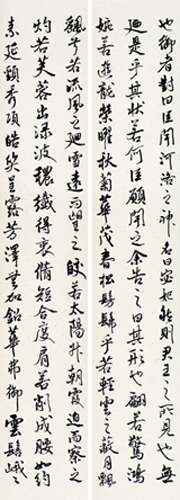 也御者對曰臣聞河洛之神名曰宓妃能則君王之所見也無
迺是乎其狀若何臣願聞之余告之曰其形也翩若驚鴻
婉若遊龍榮曜秋菊華茂春松髣髴乎若輕雲之蔽月飄
飖兮若流風之迴雪遠而望之皎若太陽升朝霞迫而察之
灼若芙蓉出淥波穠纖得衷脩短合度肩若削成腰如約
素延頸秀項皓質呈露芳澤無加鉛華弗御雲髻峨々